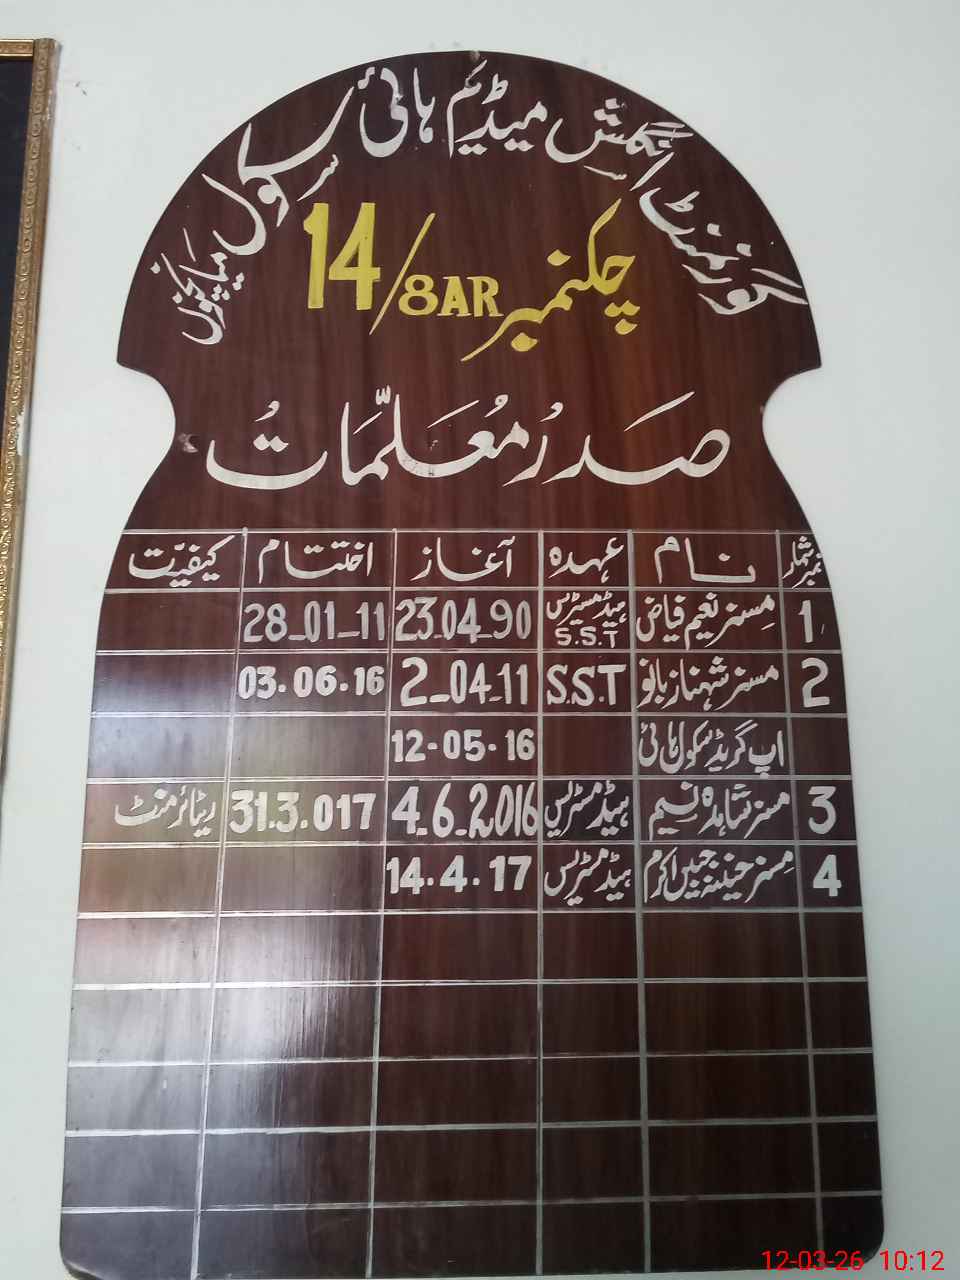 گورنمنٹ انگلش میڈیم ہائی سکول میاں چنوں
چکنمبر 14/8AR
صَدر مُعلّمَاتُ
نمبر شمار نام عہدہ آغاز اختتام کیفیّت
1 مسنز نعیم فیاض ہیڈ مسٹریس S.S.T 23_04_90 28_01_11
2 مسنز شہناز بانو S.S.T 2_04_11 03.06.16
اپ گریڈ سکول ہائی 12-05-16
3 مسنز شاہدہ نسیم ہیڈ مسٹریس 4_6_2016 31.3.017 ریٹائرمنٹ
4 مسنز جبیں اکرم ہیڈ مسٹریس 14.4.17
12-03-26 10:12